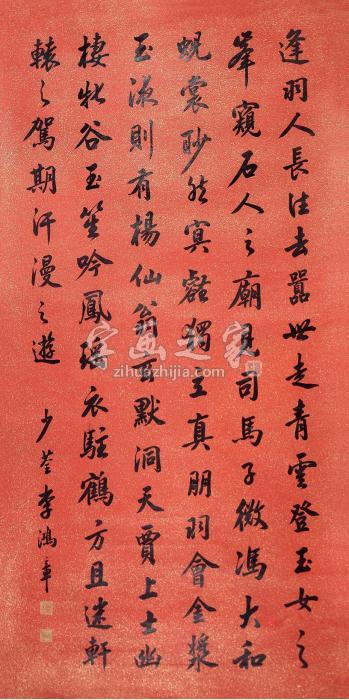 逢羽人長往去囂世走青雲登玉女之
峯窺石人之廟見司馬子微馮大和
蜕裳眇然冥壑獨立真朋羽會金漿
玉液則有楊仙翁玄默洞天賈上士幽
棲牝谷玉笙吟鳳瑶衣駐鶴方且迷軒
轅之駕期汗漫之遊
少荃李鴻章
字画之家
zihuazhijia.com